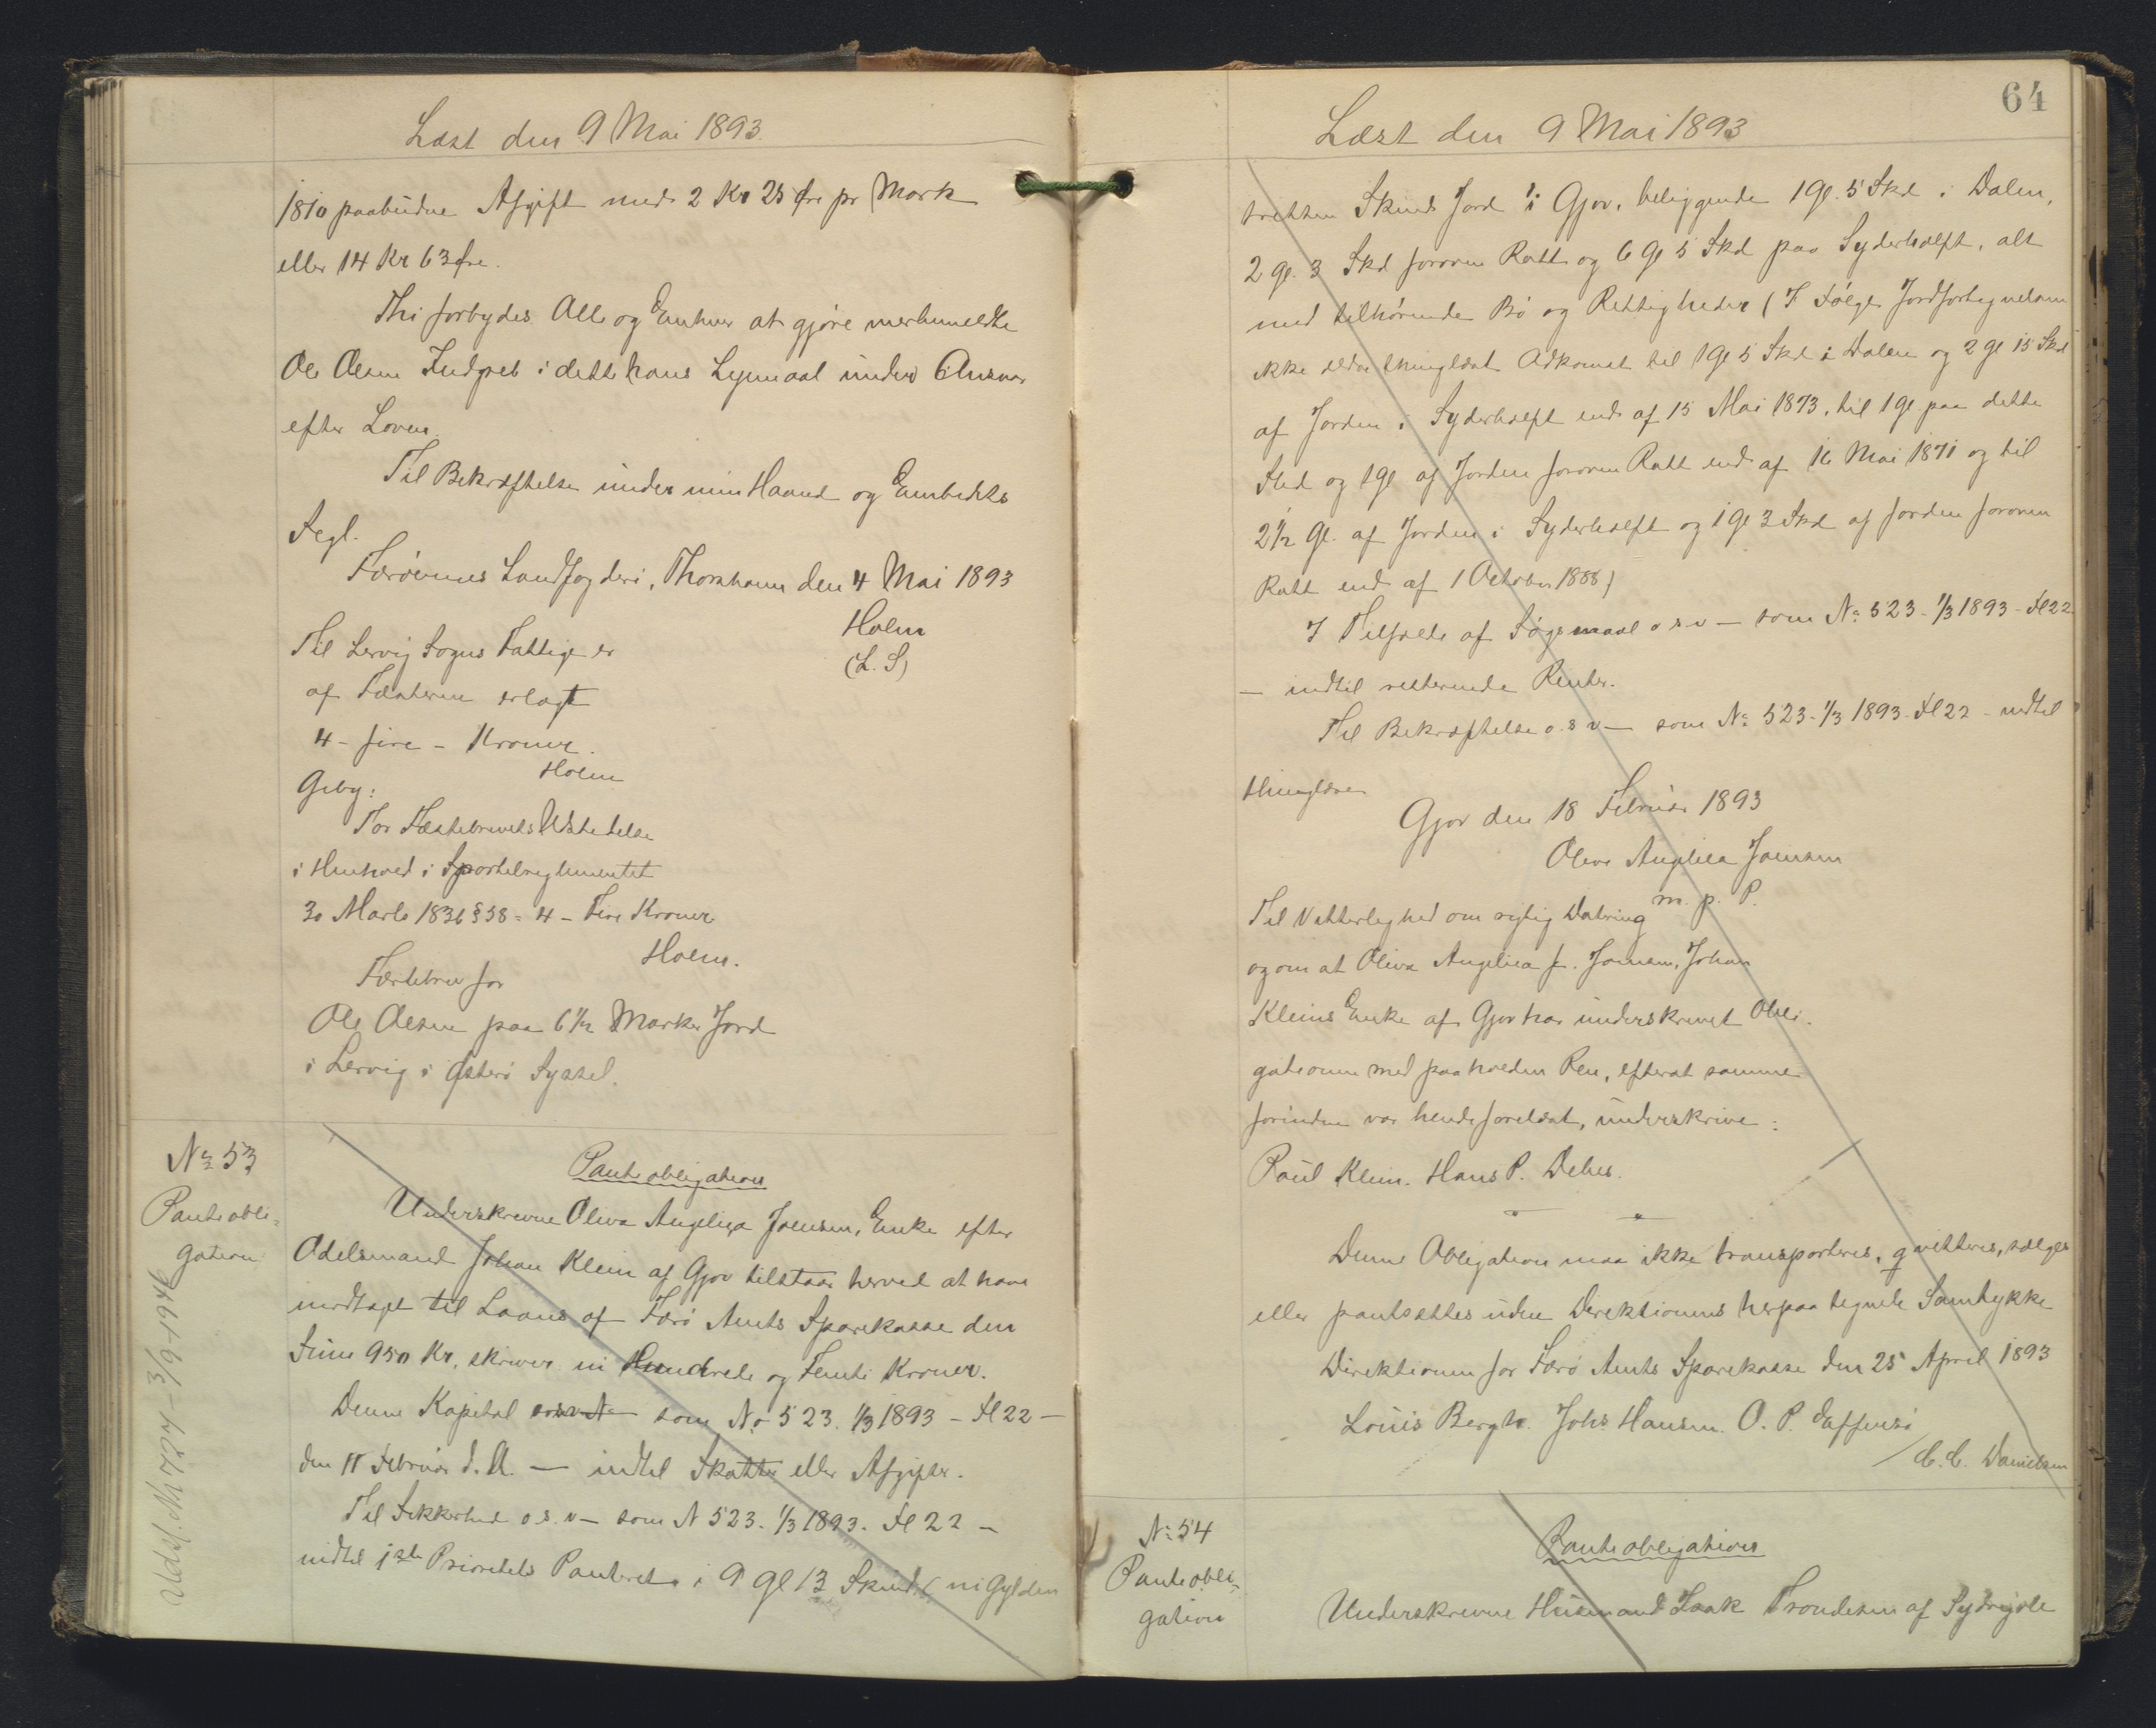 Læst den 9 Mai 1893.
1810 paabudne Afgift med 2 Kr 25 Øre pr Mark
eller 14 Kr 63 Øre.
Thi forbydes Alle og Enhver at gjøre mermeldte
Ole Olsen Indgreb i dette hans Leiemaal under Ansvar
efter Loven.
Til Bekræftelse under min Haand og Embedets
Segl.
Færøernes Landfogderi, Thorshavn den 4 Mai 1893
Holm
(L. S)
Til Lervig Sogns Fattige er
af Fæsteren erlagt
4 - fire - Kroner.
Holm
Geby:
For Fæstebrevets Udstedelse
i Henhold i Sportelreglementet
30 Marts 1836 § 58 = 4 - Fire Kroner
Holm.
Fæstebrev for
Ole Olsen paa 6 1/2 Marker Jord
i Lervig i Østerø Syssel.
No 53
Panteobli-
gation
Udsl. No 727 - 3/9-1946
Panteobligation
Underskrevne Oliva Angelica Joensen, Enke efter
Odelsmand Johan Klein af Gjov tilstaar herved at have
modtaget til Laans af Færø Amts Sparekasse den
Sum 950 Kr, skriver ni Hundrede og Femti Kroner.
Denne Kapital som No 523. 1/3 1893 - Fl 22 -
den 11 Februar d. A. - indtil Skatter eller Afgifter.
Til Sikkerhed o.s.v - som N 523. 1/3 1893. Fl 22 -
indtil 1ste Prioritets Panteret i 9 Gl 13 Skind (ni Gylden
64
Læst den 9 Mai 1893
tretten Skind Jord i Gjov, beliggende 1 Gl. 5 Skd i Dalen,
2 gl. 3 Skd foroven Rætt og 6 Gl 5 Skd paa Syderhalft, alt
med tilhørende Bø og Rettigheder (I Følge Jordfortegnelsen
ikke ældre thinglæst Adkomst til 1 Gl 5 Skd i Dalen og 2 gl 15 Skd
af Jorden i Syderhalft end af 15 Mai 1873, til 1 gl paa dette
Sted og 1 gl af Jorden foroven Rætt end af 16 Mai 1871 og til
2 1/2 Gl. af Jorden i Syderhalft og 1 gl 3 Skd af Jorden foroven
Rætt end af 1 October 1888)
I Tilfælde af Søgsmaal o s v - som No 523 - 1/3 1893 - Fl 22
- indtil resterende Renter.
Til Bekræftelse o. s v - som No 523 - 1/3 1893 - Fl 22 - indtil
thinglæse
Gjov den 18 Februar 1893
Oliva Angelica Joensen
m. p. P.
Til Vitterlighed om rigtig Datering
og om at Oliva Angelica f. Joensen, Johan
Kleins Enke af Gjov har underskrevet Obli-
gationen med paaholden Pen, efterat samme
forinden var hende forelæst, underskrive:
Poul Klein. Hans P. Debes.
Denne Obligation maa ikke transporteres, qvitteres, sælges
eller pantsættes uden Direktionens herpaa tegnede Samtykke
Direktionen for Færø Amts Sparekasse den 25 April 1893
Louis Bergh. Johs Hansen. O. P. Effersø
/ C. C. Danielsen
No 54
Panteobli-
gation
Panteobligation
Underskrevne Husmand Isak Trondesen af Sydrigøte